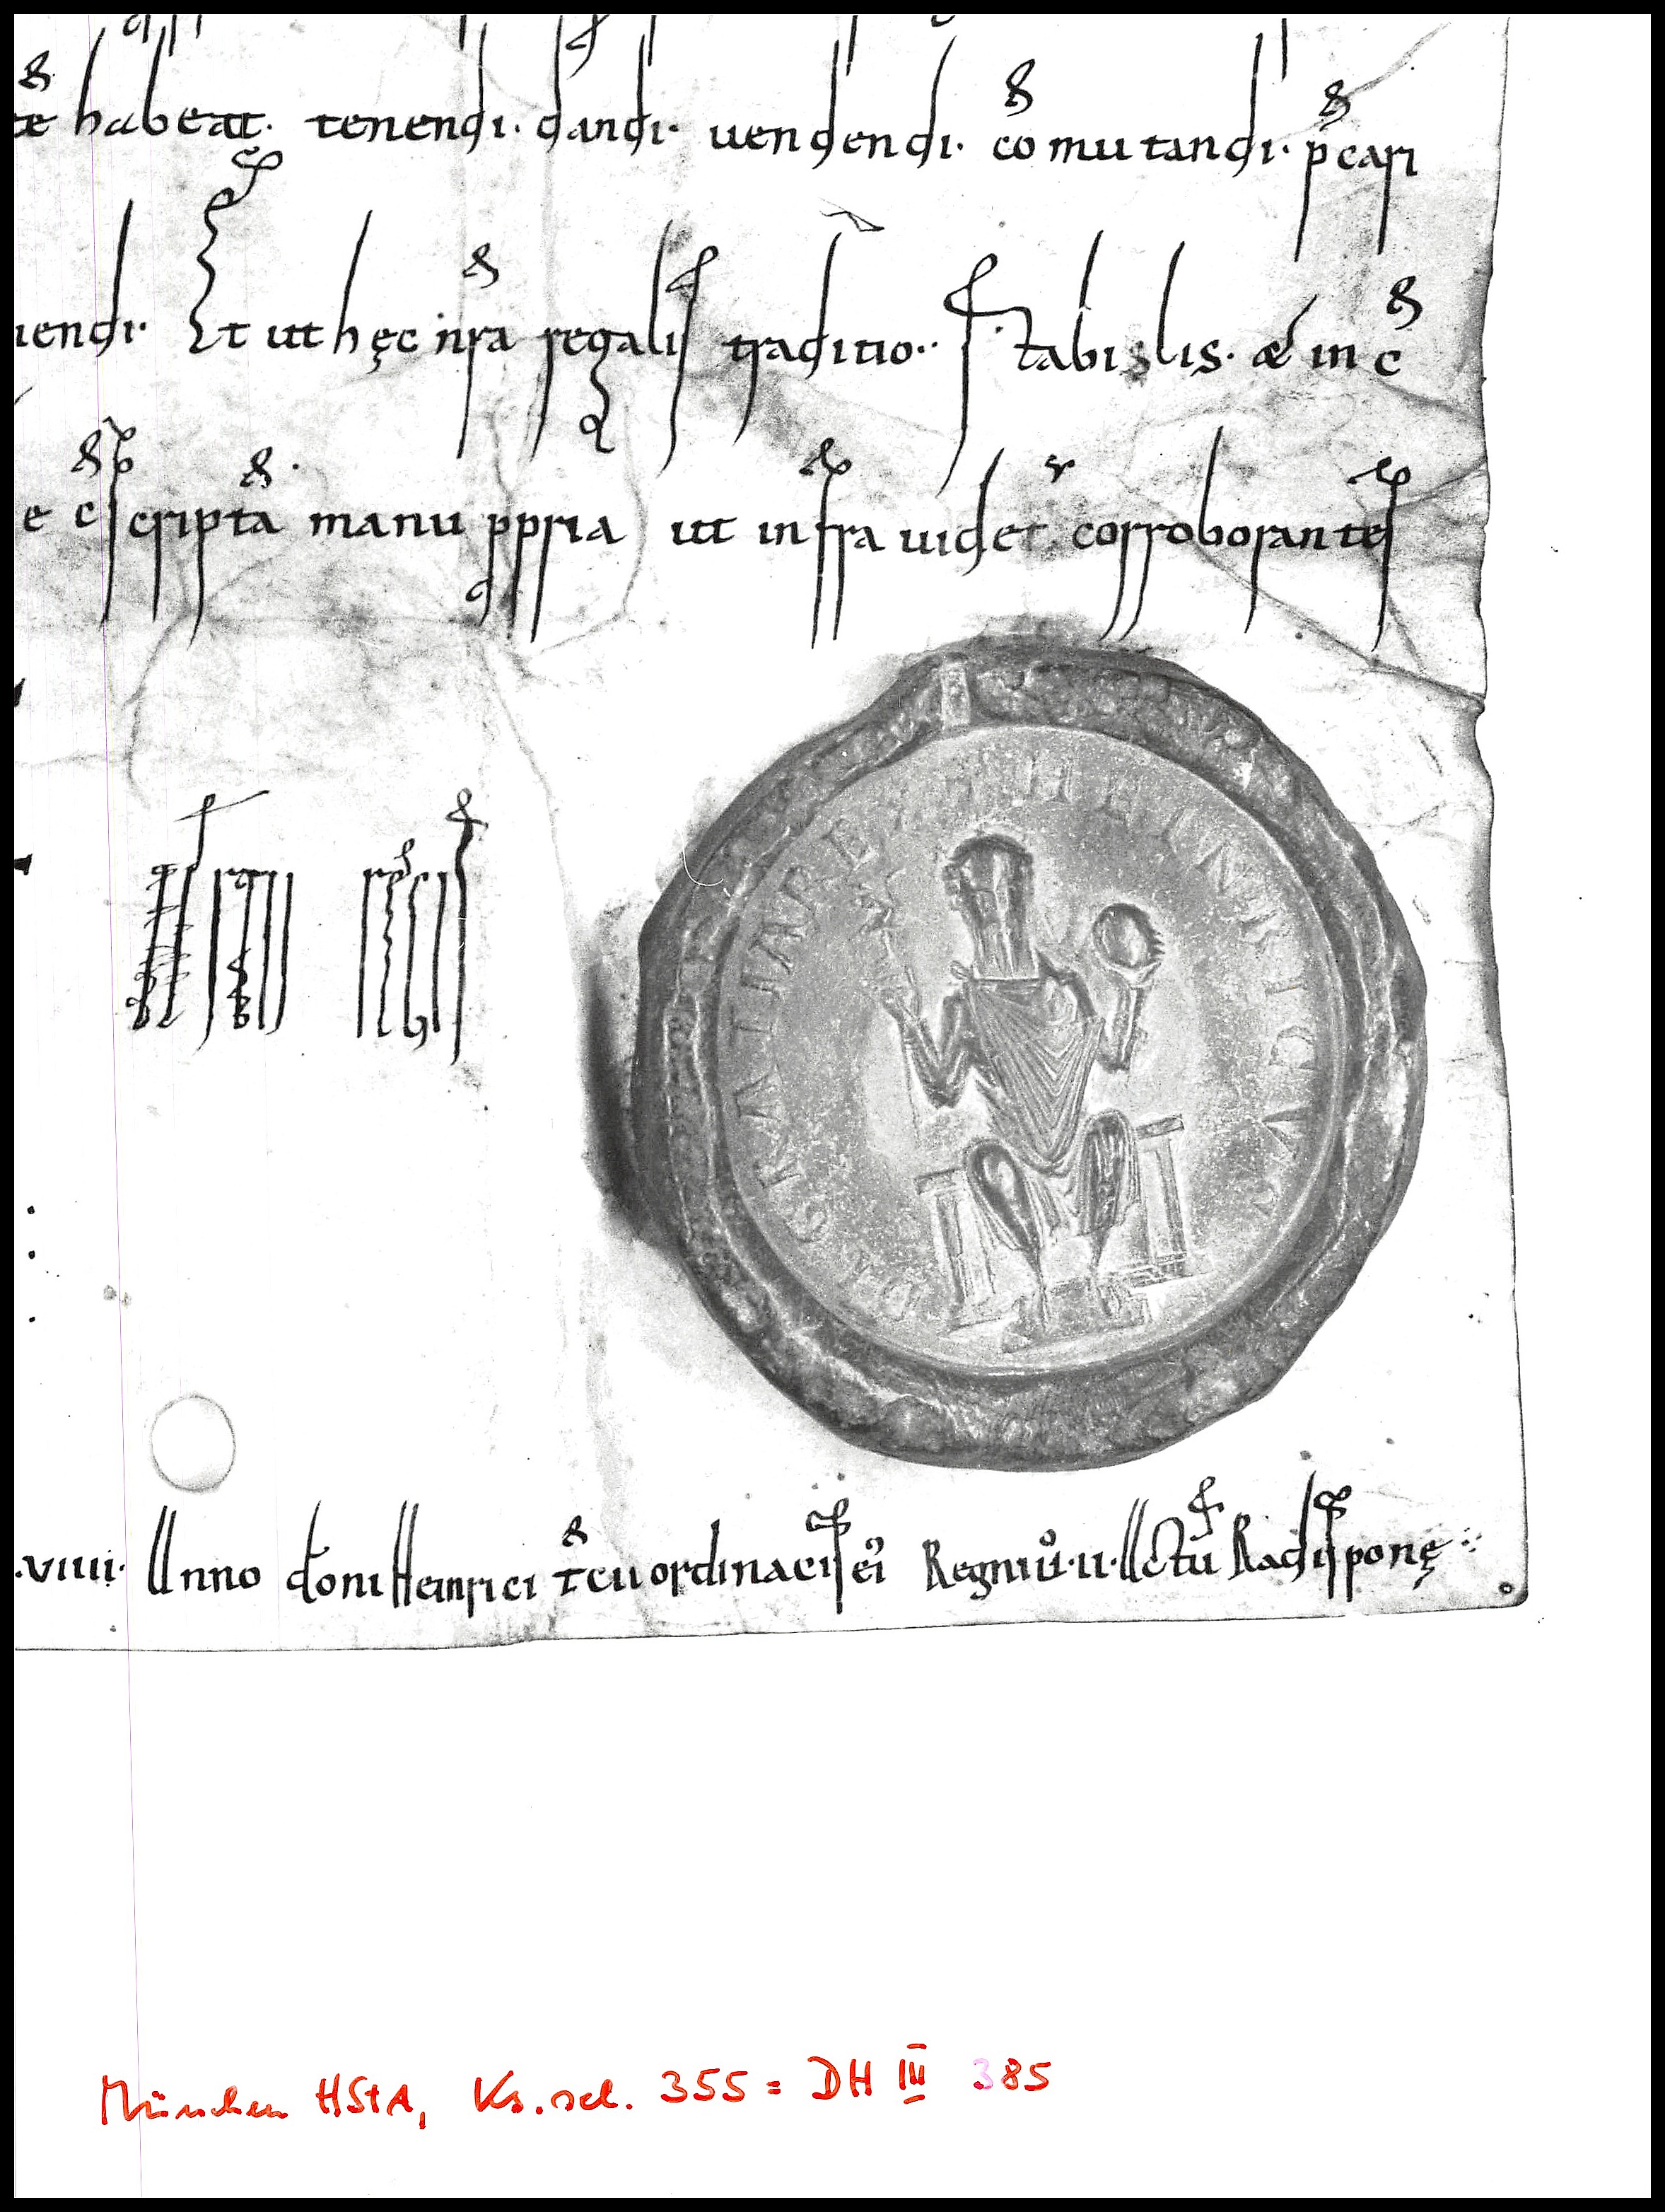 te habeat. tenendi. dandi. uendendi. cōmutandi. p̄cari
iendi. Et ut hęc nr̄a regalis traditio.. stabilis. & in c̄
e c̄scripta manu ppria ut infra uidet᷑ corroborantes
DI GRATIA REX HEINRICUS
.VIIII. Anno domi Heinrici tc̄ii ordinacis ei Regni ů. II. Actū Radisponę
München HStA, Ks. sel. 355 = DH III 385